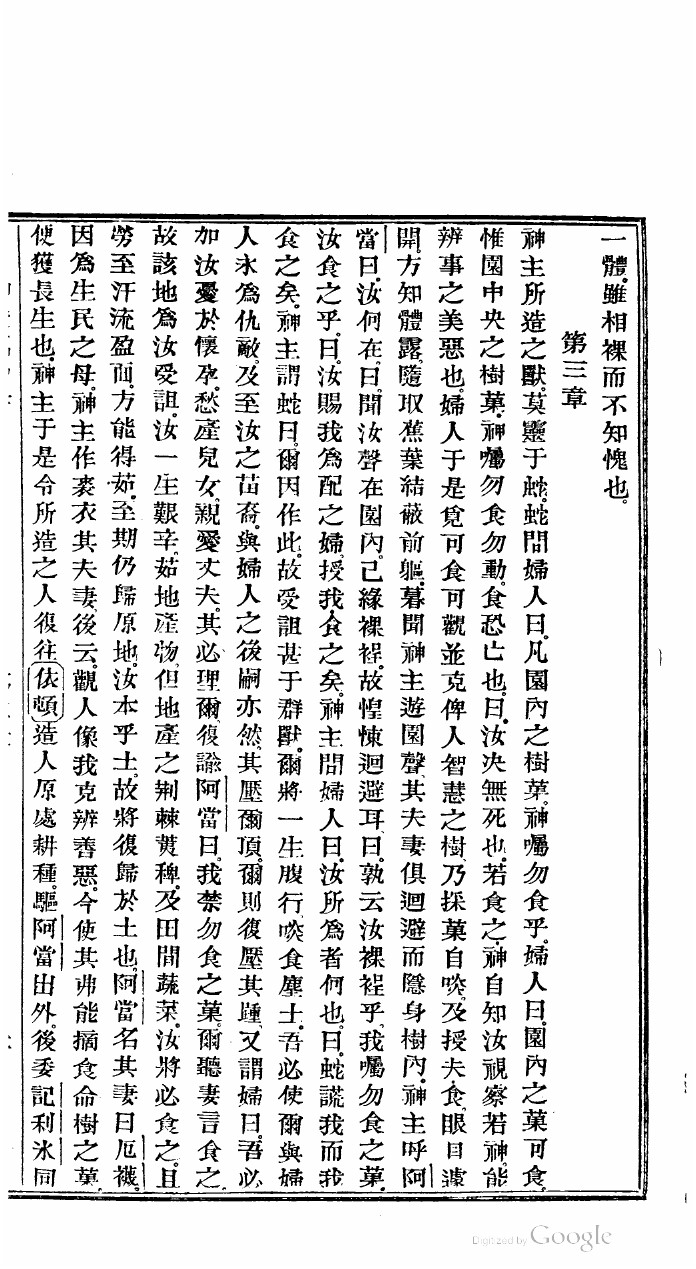 一體。雖相裸而不知愧也。
第三章
神主所造之獸。莫靈于蛇。蛇問婦人曰。凡園內之樹菓。神囑勿食乎。婦人曰。園內之菓可食。
惟園中央之樹菓。神囑勿食勿動。食恐亡也。曰。汝決無死也。若食之。神自知汝視察若神。能
辨事之美惡也。婦人于是覓可食可觀並克俾人智慧之樹。乃採菓自啖。及授夫食。眼目遽
開。方知體露。隨取蕉葉結蔽前軀。暮聞神主遊園聲。其夫妻俱迴避而隱身樹內。神主呼阿
當曰。汝何在。曰。聞汝聲在園內。己緣裸裎。故惶悚迴避耳。曰。孰云汝裸裎乎。我囑勿食之菓。
汝食之乎。曰。汝賜我為配之婦。授我。食之矣。神主問婦人曰。汝所為者何也。曰。蛇謊我而我
食之矣。神主謂蛇曰。爾因作此。故受詛甚于群獸。爾將一生腹行。啖食塵土。吾必使爾與婦
人永為仇敵。及至汝之苗裔。與婦人之後嗣亦然。其壓爾頂。爾則復壓其踵。又謂婦曰。吾必
加汝憂於懷孕。愁產兒女。親愛丈夫。其必理爾。復諭阿當曰。我禁勿食之菓。爾聽妻言食之。
故該地為汝受詛。汝一生艱辛。茹地產物。但地產之荆棘蒺稗。及田間蔬菜。汝將必食之。且
勞至汗流盈面。方能得茹。至期仍歸原地。汝本乎土。故將復歸於土也。阿當名其妻曰厄襪。
因為生民之母。神主作裘衣其夫妻。後云。觀人像我克辨善惡。今使其弗能摘食命樹之菓。
便獲長生也。神主于是令所造之人復往依頓造人原處耕種。驅阿當出外。後委記利氷同